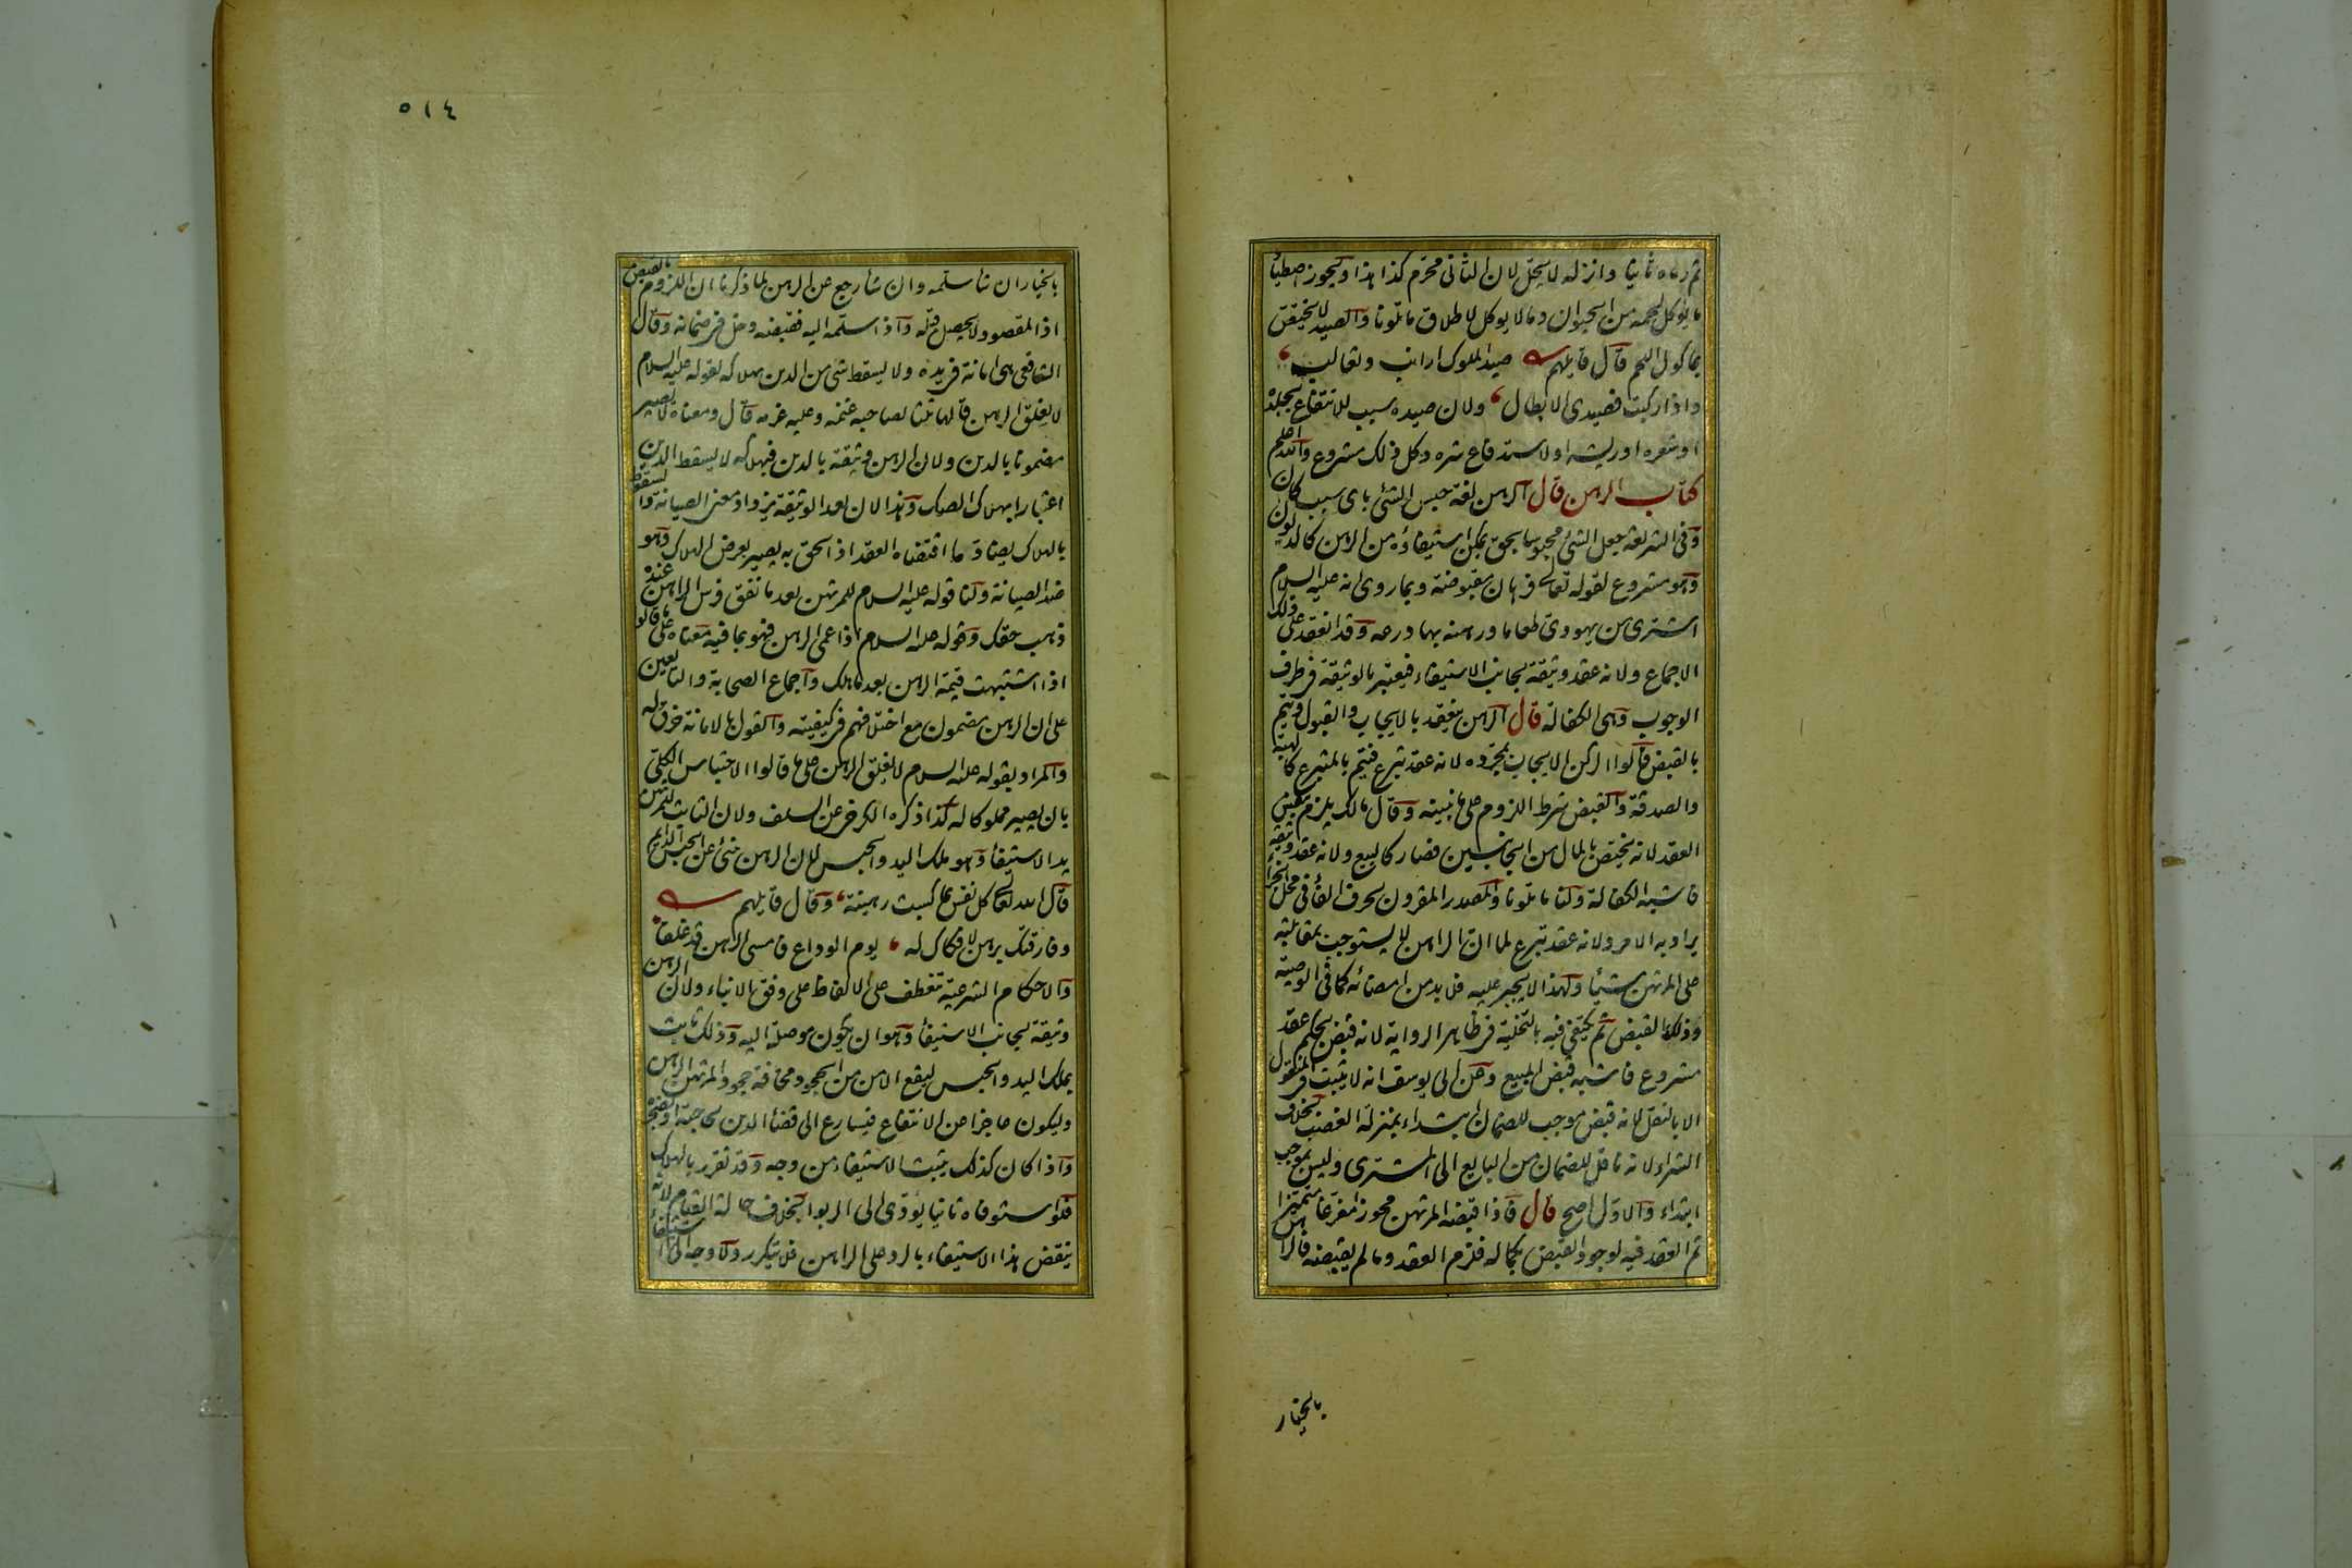 ثم رماه ثانيا وانزله لا يحل لان الثانى محرم كذا هذا ويجوز اصطياد
ما يؤكل لحمه من الحيوان وما لا يؤكل لاطلاق ما تلونا والصيد لا يختص
بماكول اللحم قال قايلهم صيد الملوك ارانب وثعالب
واذا ركبت فصيدى الابطال ولان صيده سبب للانتفاع بجلده
او شعره او ريشه او لاستدفاع شره وكل ذلك مشروع والله اعلم
كتاب الرهن قال الرهن لغة حبس الشئ باى سبب كان
وفى الشريعة جعل الشئ محبوسا بحق يمكن استيفاؤه من الرهن كالديون
وهو مشروع لقوله تعالى فرهان مقبوضة وبما روى انه عليه السلام
اشترى من يهودى طعاما ورهنه بها درعه وقد انعقد على ذلك
الاجماع ولانه عقد وثيقة بجانب الاستيفاء فيعتبر بالوثيقة فى طرف
الوجوب وهى الكفالة قال الرهن ينعقد بالايجاب والقبول ويتم
بالقبض قالوا الركن الايجاب بمجرده لانه عقد تبرع فيتم بالمتبرع كالهبة
والصدقة والقبض شرط اللزوم على ما نبينه وقال مالك يلزم بنفس
العقد لانه يختص بالمال من الجانبين فصار كالبيع ولانه عقد وثيقة
فاشبه الكفالة ولنا ما تلونا والمصدر المقرون بحرف الفاء فى محل الجزاء
يراد به الامر ولانه عقد تبرع لما ان الراهن لا يستوجب بمقابلته
على المرتهن شيئا ولهذا لا يجبر عليه فلا بد من امضائه كما فى الوصية
وذلك بالقبض ثم يكتفى فيه بالتخلية فى ظاهر الرواية لانه قبض بحكم عقد
مشروع فاشبه قبض المبيع وعن ابى يوسف انه لا يثبت فى المنقول
الا بالنقل لانه قبض موجب للضمان ابتداء بمنزلة الغصب بخلاف
الشراء لانه ناقل للضمان من البايع الى المشترى وليس بموجب
ابتداء والاول اصح قال فاذا قبضه المرتهن محوزا مفرغا متميزا
تم العقد فيه لوجود القبض بكماله فلزم العقد وما لم يقبضه فالراهن
بالخيار
٥١٤
بالخيار ان شا سلمه وان شا رجع عن الرهن لما ذكرنا ان اللزوم بالقبض
اذ المقصود لا يحصل قبله واذا سلمه اليه فقبضه دخل فى ضمانه وقال
الشافعى هى امانة فى يده ولا يسقط شئ من الدين بهلاكه لقوله عليه السلام
لا يغلق الرهن قالها ثلثا لصاحبه غنمه وعليه غرمه قال ومعناه لا يصير
مضمونا بالدين ولان الرهن وثيقة بالدين فبهلاكه لا يسقط الدين
اعتبارا بهلاك الصك وهذا لان بعد الوثيقة يزداد معنى الصيانة والسقوط
بالهلاك يضاد ما اقتضاه العقد اذ الحق به يصير بعرض الهلاك وهو
ضد الصيانة ولنا قوله عليه السلام للمرتهن بعد ما نفق فرس الراهن عنده
ذهب حقك وقوله عليه السلام اذا عمى الرهن فهو بما فيه معناه على ما قالوا
اذا اشتبهت قيمة الرهن بعد ما هلك واجماع الصحابة والتابعين
على ان الرهن مضمون مع اختلافهم فى كيفيته والقول بالامانة خرق له
والمراد بقوله عليه السلام لا يغلق الرهن على ما قالوا الاحتباس الكلى
بان يصير مملوكا له كذا ذكره الكرخى عن السلف ولان الثابت للمرتهن
يد الاستيفا وهو ملك اليد والحبس لان الرهن ينبئ عن الحبس الدايم
قال الله تعالى كل نفس بما كسبت رهينة وقال قايلهم
وفارقتك برهن لا فكاك له يوم الوداع فامسى الرهن قد غلقا
والاحكام الشرعية تنعطف على الالفاظ على وفق الانباء ولان الرهن
وثيقة لجانب الاستيفا وهو ان يكون موصلة اليه وذلك ثابت
بملك اليد والحبس ليقع الامن من الجحود مخافة جحود المرتهن الرهن
وليكون عاجزا عن الانتفاع فيسارع الى قضا الدين لحاجته او لضجره
واذا كان كذلك يثبت الاستيفاء من وجه وقد تقرر بالهلاك
فلو استوفاه ثانيا يؤدى الى الربوا بخلاف حالة القيام لانه
ينقض هذا الاستيفاء بالرد على الراهن فلا يتكرر ولا وجه الى استيفاء